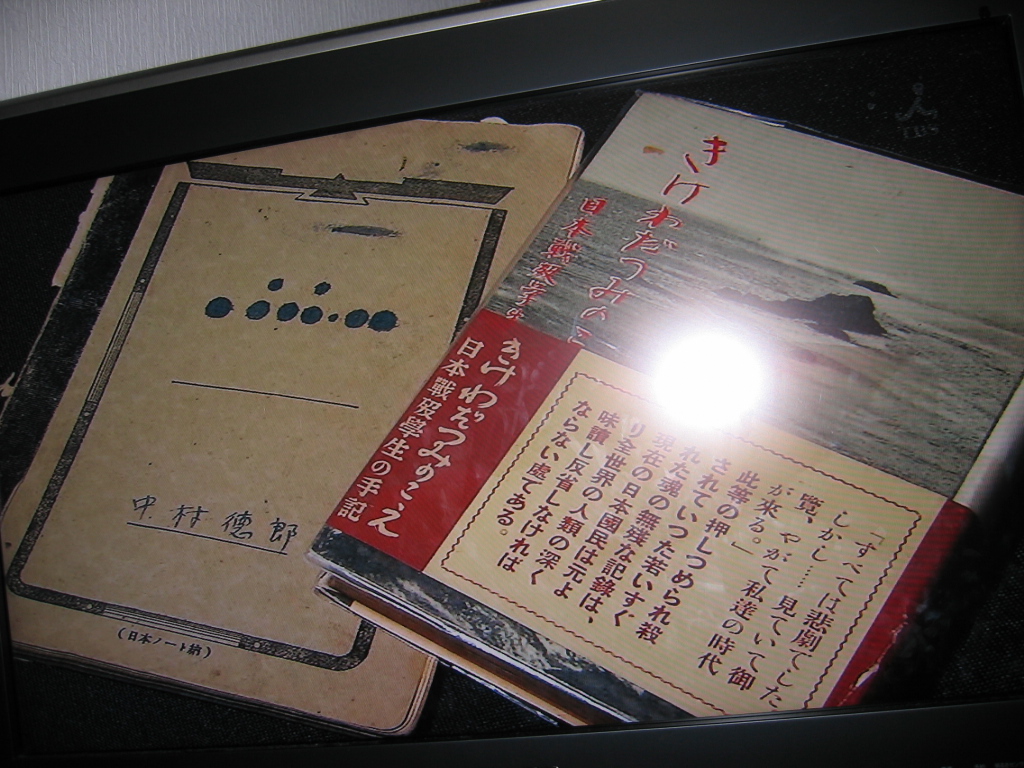 中村德郎
(日本ノート納)
きけ
わだつみの
日本戰歿学生
きけわだつみのこえ
日本戰歿學生の手記
「すべては悲劇でした
しかし……見ていて御
覽、やがて私達の時代
が来る。」
此等の押しつめられ殺
されていつた若いすぐ
れた魂の無残な記録は、
現在の日本國民は元よ
り全世界の人類の深く
味讀し反省しなければ
ならない處である。